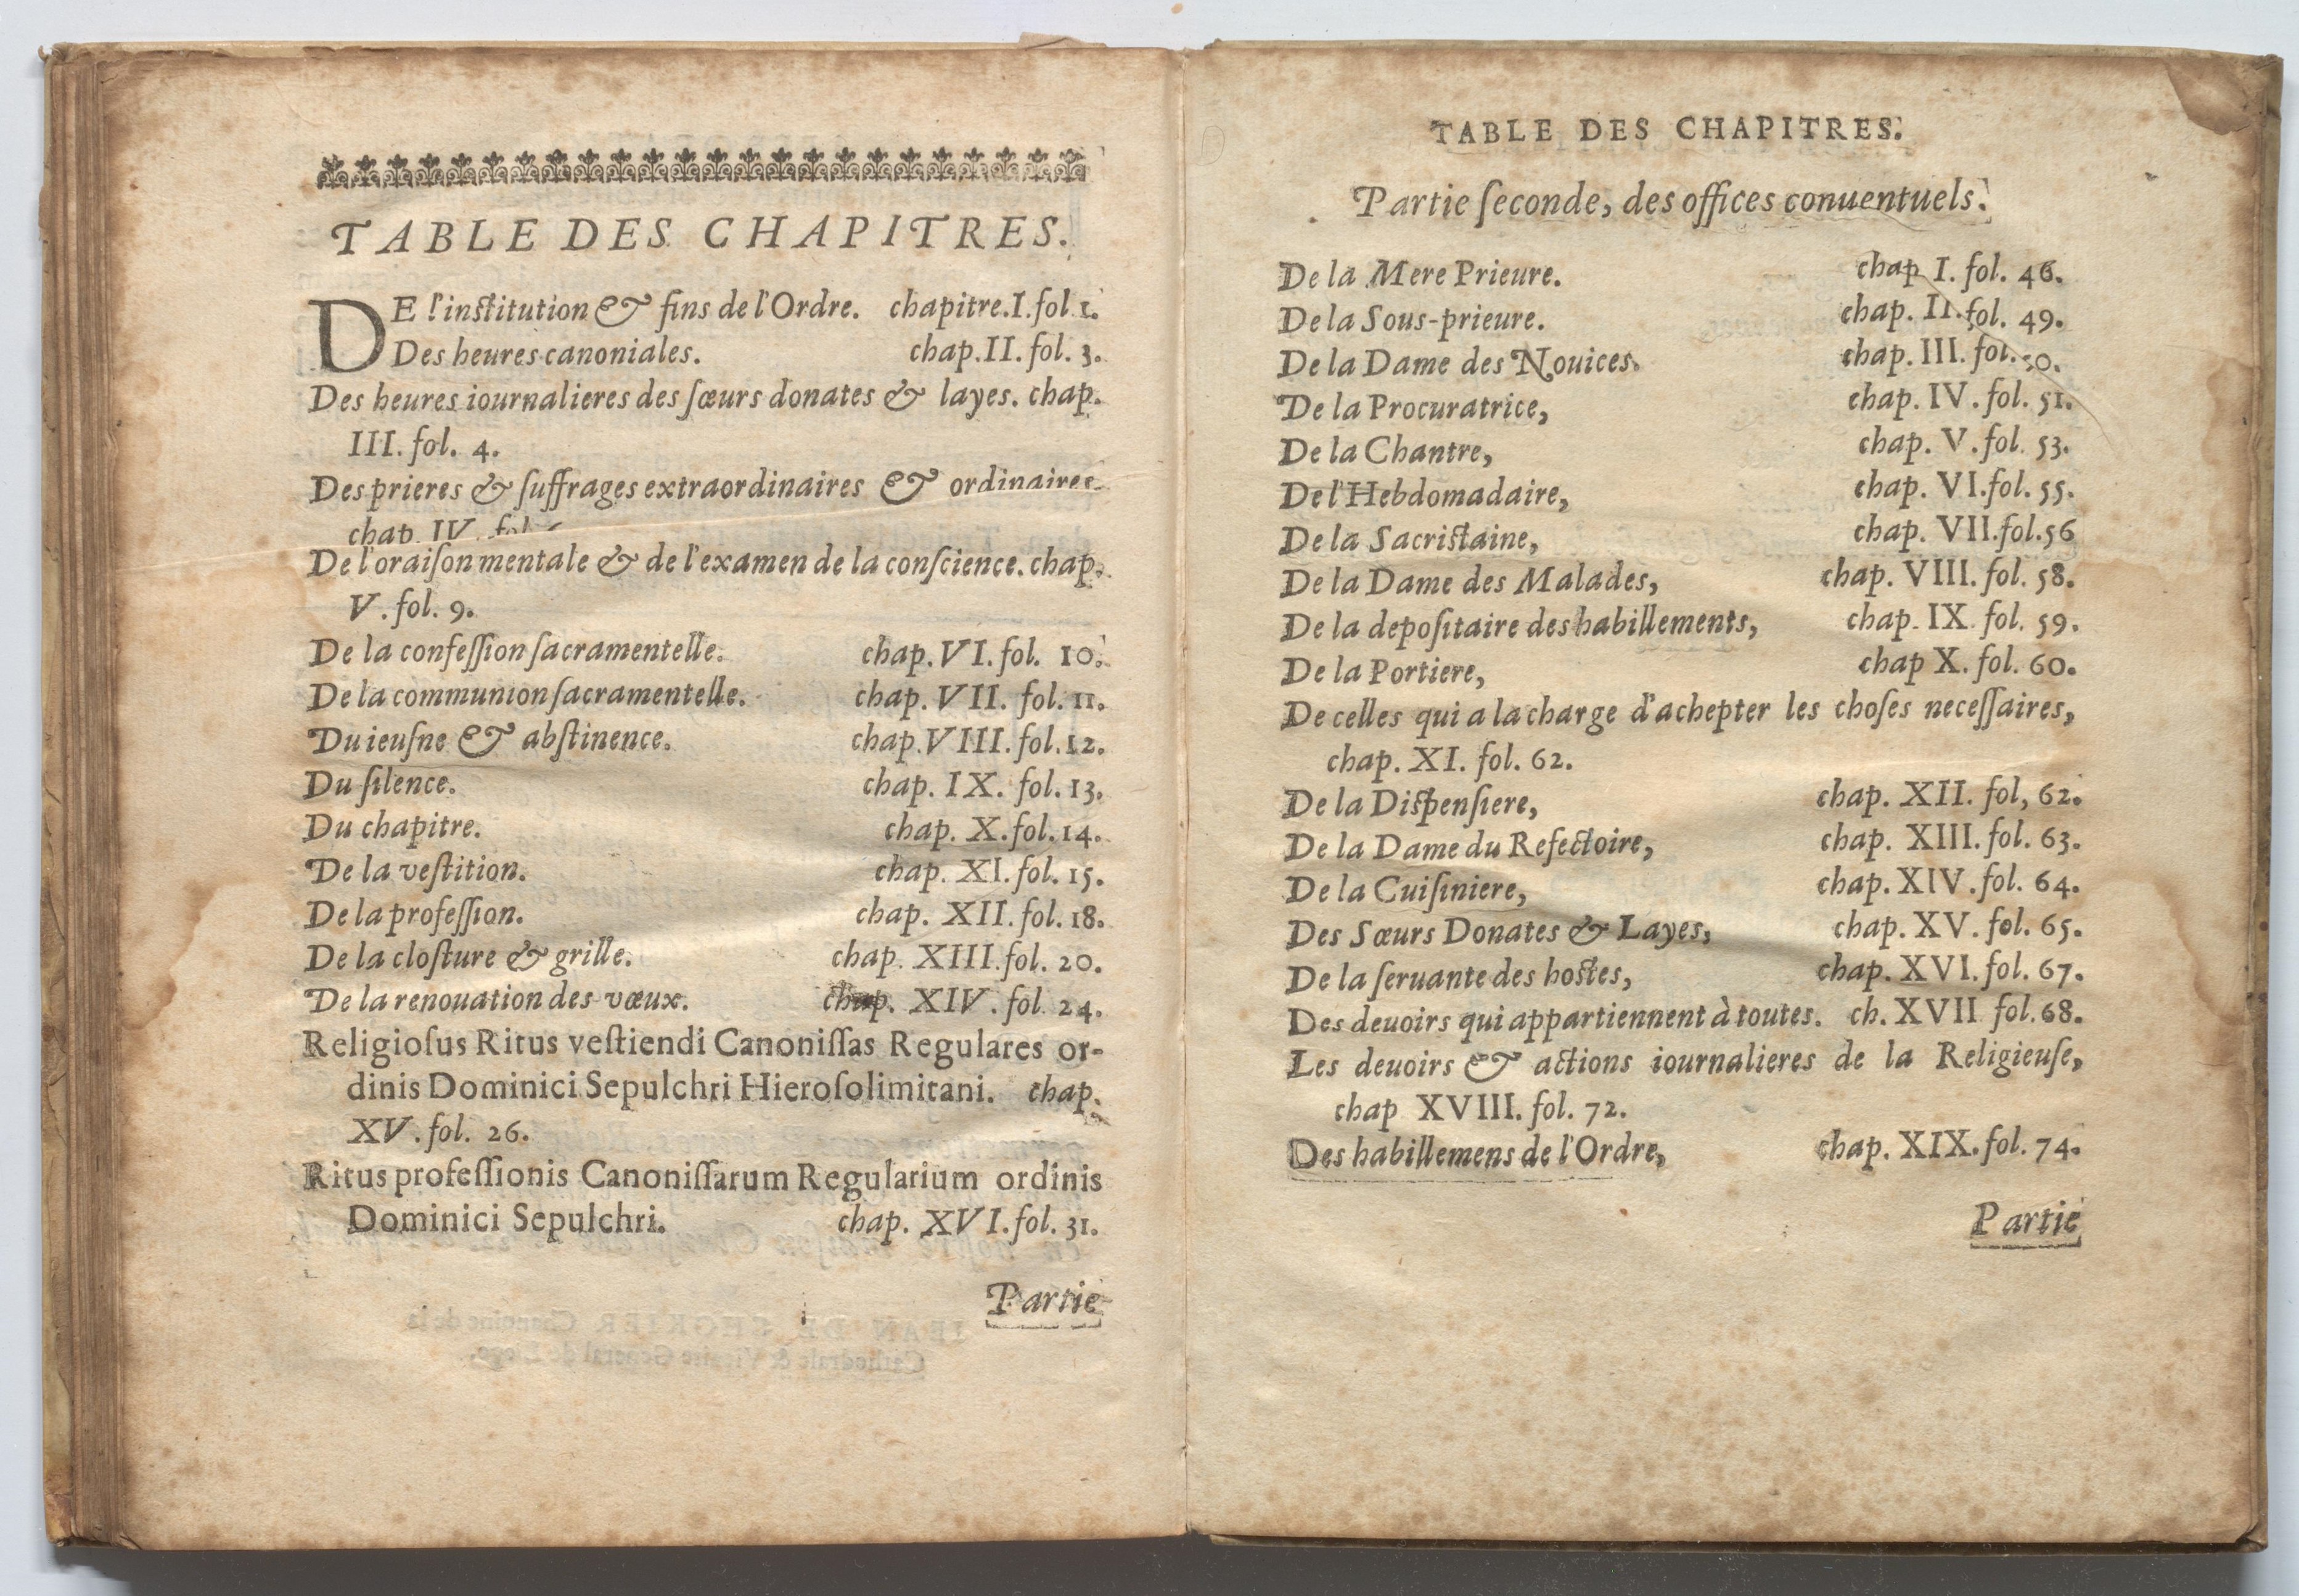 TABLE DES CHAPITRES.
DE l'institution & fins de l'Ordre. chapitre.I.fol 1.
Des heures canoniales. chap.II. fol. 3.
Des heures iournalieres des sœurs donates & layes. chap.
III. fol. 4.
Des prieres & suffrages extraordinaires & ordinaires
chap. IV. fol.
De l'oraiſon mentale & de l'examen de la conſcience. chap.
V. fol. 9.
De la confeſſion ſacramentelle. chap. VI. fol. 10.
De la communion ſacramentelle. chap. VII. fol. 11.
Du ieuſne & abſtinence. chap. VIII. fol. 12.
Du ſilence. chap. IX. fol. 13.
Du chapitre. chap. X. fol. 14.
De la veſtition. chap. XI. fol. 15.
De la profeſſion. chap. XII. fol. 18.
De la cloſture & grille. chap. XIII. fol. 20.
De la renouation des vœux. chap. XIV. fol. 24.
Religioſus Ritus veſtiendi Canoniſſas Regulares or-
dinis Dominici Sepulchri Hieroſolimitani. chap.
XV. fol. 26.
Ritus profeſſionis Canoniſſarum Regularium ordinis
Dominici Sepulchri. chap. XVI. fol. 31.
Partie
TABLE DES CHAPITRES.
Partie ſeconde, des offices conuentuels.
De la Mere Prieure. chap I. fol. 46.
De la Sous-prieure. chap. II. fol. 49.
De la Dame des Nouices. chap. III. fol.
De la Procuratrice, chap. IV. fol. 51.
De la Chantre, chap. V. fol. 53.
De l'Hebdomadaire, chap. VI. fol. 55.
De la Sacristaine, chap. VII. fol. 56
De la Dame des Malades, chap. VIII. fol. 58.
De la depoſitaire des habillements, chap. IX fol. 59.
De la Portiere, chap X. fol. 60.
De celles qui a la charge d'achepter les choſes neceſſaires,
chap. XI. fol. 62.
De la Diſpenſiere, chap. XII. fol, 62.
De la Dame du Refectoire, chap. XIII. fol. 63.
De la Cuiſiniere, chap. XIV. fol. 64.
Des Sœurs Donates & Layes, chap. XV. fol. 65.
De la ſeruante des hostes, chap. XVI. fol. 67.
Des deuoirs qui appartiennent à toutes. ch. XVII fol. 68.
Les deuoirs & actions iournalieres de la Religieuſe,
chap XVIII. fol. 72.
Des habillemens de l'Ordre, chap. XIX. fol. 74.
Partie